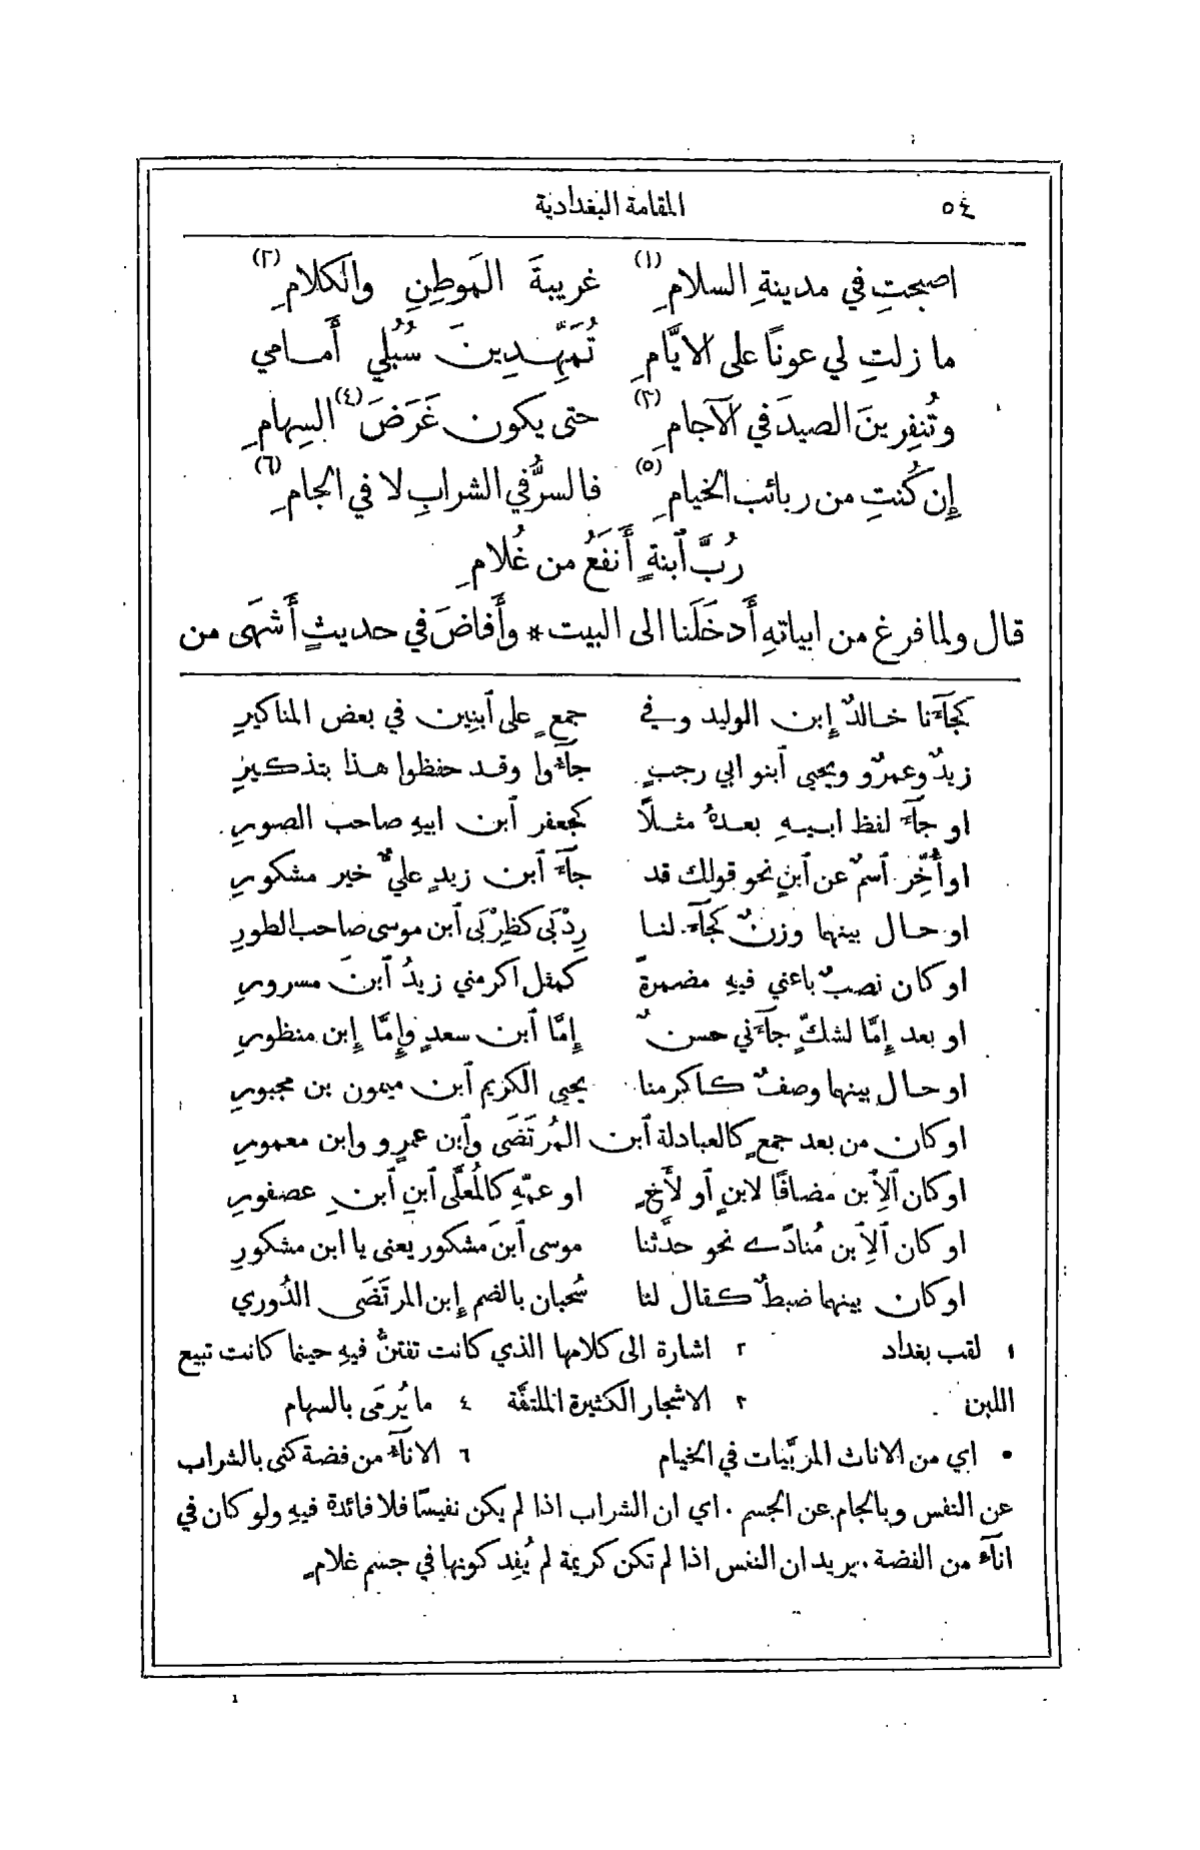 ٤٥ المقامة البغدادية
اصبحتِ في مدينةِ السلامِ (١) غريبةَ المَوطِنِ والكلامِ (٢)
ما زلتِ لي عونًا على الايَّامِ تُمَهِّدِينَ سُبُلي أَمامي
وتُنفِرينَ الصيدَ في الآجامِ (٣) حتى يكون غَرَضَ (٤) السِهامِ
إِن كُنتِ من ربائب الخيامِ (٥) فالسرُّ في الشرابِ لا في الجامِ (٦)
رُبَّ ٱبنةٍ أَنفَعُ من غُلامِ
قال ولما فرغ من ابياتهِ أَدخَلَنا الى البيت * وأَفاضَ في حديثٍ أَشهَى من
كجآءَنا خالدٌ إِبن الوليد وفي جمعٍ على ٱبنِين في بعض المناكيرِ
زيدٌ وعمرٌو ويحيى ٱبنو ابي رجبٍ جآءُوا وقد حفظوا هذا بتذكيرِ
او جآءَ لفظ ابيهِ بعدهُ مثلًا كجعفر ٱبن ابيهِ صاحب الصورِ
او أُخِّر ٱسمٌ عن ٱبنٍ نحو قولك قد جآءَ ٱبن زيدٍ عليٌّ خير مشكورِ
او حال بينهما وزنٌ كجآءَ لنا رِدْبَى كظِرْبَى ٱبن موسى صاحب الطورِ
او كان نصبٌ باعني فيهِ مضمرةً كمثل اكرمني زيدُ ٱبنَ مسرورِ
او بعد إِمَّا لشكٍّ جآءَني حسنٌ إِمَّا ٱبن سعدٍ وإِمَّا إِبن منظورِ
او حال بينهما وصفٌ كاكرمنا يحيى الكريم ٱبن ميمون بن مجبورِ
او كان من بعد جمعٍ كالعبادلة ٱبن المُرتَضَى وٱبن عمرٍو وابن معمورِ
او كان ٱلاِبن مضافًا لابنٍ أو لأَخٍ او عمّهِ كالمُعلَّى ٱبنِ ٱبنِ عصفورِ
او كان ٱلاِبن مُنادًى نحو حدَّثنا موسى ٱبنَ مشكور يعني يا ابن مشكورِ
او كان بينهما ضبطٌ كقال لنا سُحبان بالضم إِبن المرتَضَى الدُوري
١ لقب بغداد ٢ اشارة الى كلامها الذي كانت تفتنُّ فيهِ حينما كانت تبيع
اللبن ٣ الاشجار الكثيرة الملتفَّة ٤ ما يُرمَى بالسهام
٥ اي من الاناث المربَّيات في الخيام ٦ الانآءُ من فضة كنى بالشراب
عن النفس وبالجام عن الجسم . اي ان الشراب اذا لم يكن نفيسًا فلا فائدة فيهِ ولو كان في
انآءٍ من الفضة . يريد ان النفس اذا لم تكن كريمة لم يُفِد كونها في جسم غلامٍ